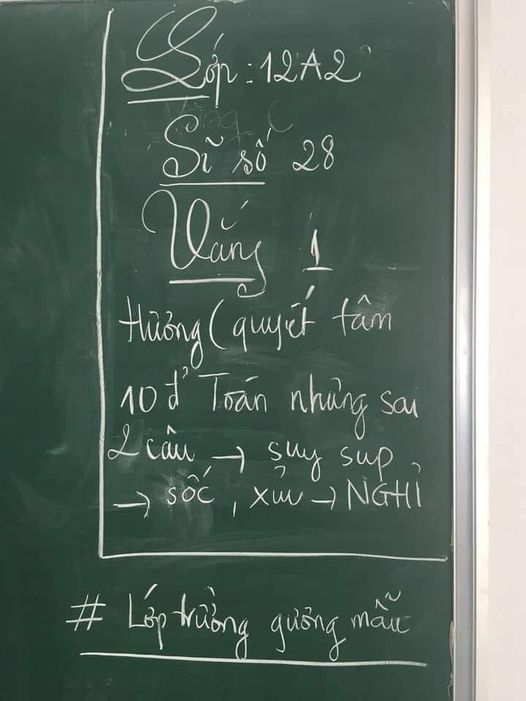 Lớp : 12A2
Sĩ số 28
Vắng 1
Hường (quyết tâm
10 đ' Toán nhưng sai
2 câu → suy sụp
→ sốc, xỉu → NGHỈ
# Lớp trưởng gương mẫu